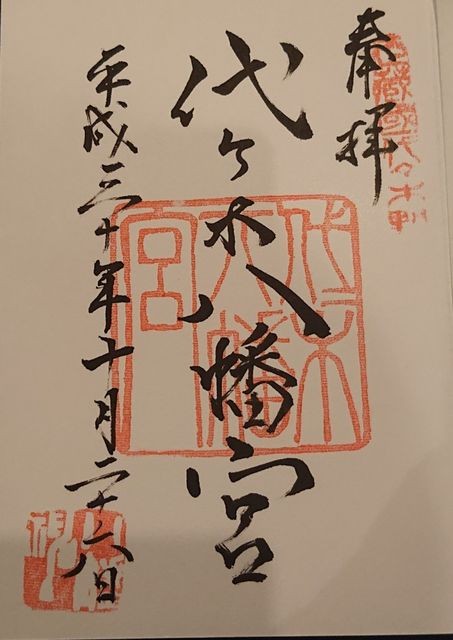 奉拝
武蔵國代々木野
代々木八幡宮
平成三十年十月二十六日